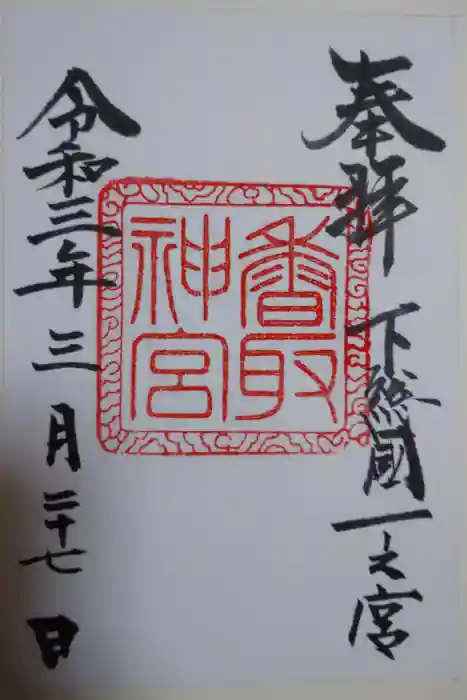 奉拝 下総國一之宮
香取
神宮
令和三年三月二十七日